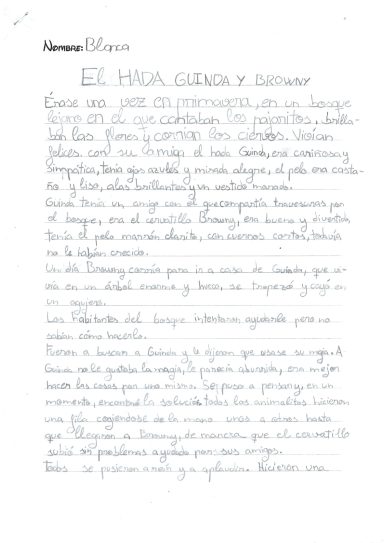 NOMBRE: Blanca
EL HADA GUINDA Y BROWNY
Érase una vez en primavera, en un bosque
lejano en el que cantaban los pajaritos, brilla-
ban las flores y corrían los ciervos. Vivían
felices. con su amiga el hada Guinda, era cariñosa y
simpática, tenía ojos azules y mirada alegre, el pelo era casta-
ño y liso, alas brillantes y un vestido morado.
Guinda tenía un amigo con el que compartía travesuras por
el bosque, era el cervatillo Browny, era bueno y divertido,
tenía el pelo marrón clarito, con cuernos cortos, todavía
no le habían crecido.
Un día Browny corría para ir a casa de Guinda, que vi-
vía en un árbol enorme y hueco, se tropezó y cayó en
un agujero.
Los habitantes del bosque intentaron ayudarle pero no
sabían cómo hacerlo.
Fueron a buscar a Guinda y le dijeron que usase su magia. A
Guinda no le gustaba la magia, le parecía aburrida, era mejor
hacer las cosas por uno mismo. Se puso a pensar y, en un
momento, encontró la solución: todos los animalitos hicieron
una fila cogiéndose de la mano unos a otros hasta
que llegaron a Browny, de manera que el cervatillo
subió sin problemas ayudado por sus amigos.
Todos se pusieron a reír y a aplaudir. Hicieron una